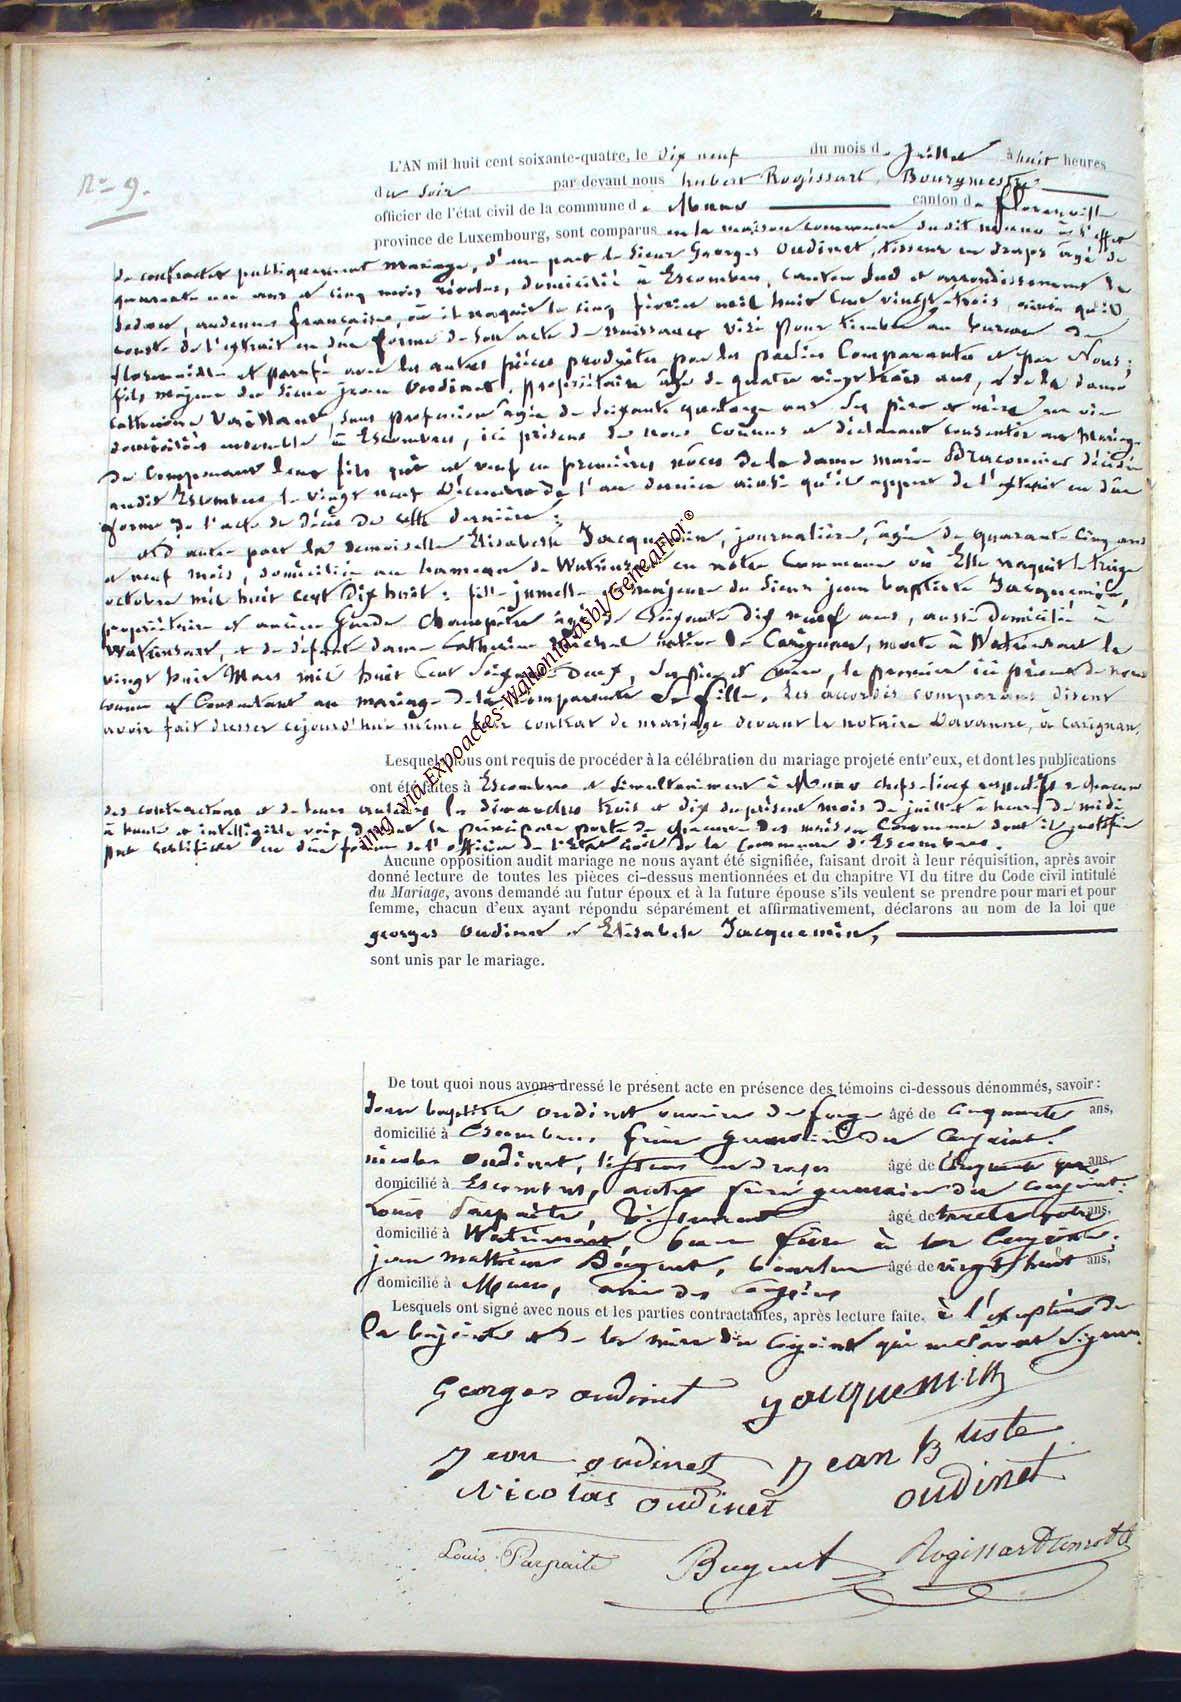 N° 9.
L'AN mil huit cent soixante-quatre, le dix neuf du mois de juillet à huit heures
du soir par devant nous hubert Rogissart, Bourgmestre
officier de l'état civil de la commune de Muno canton de florenville
province de Luxembourg, sont comparus en la maison commune dudit muno à l'effet
de contracter publiquement mariage, d'une part le sieur Georges Oudinet, tisseur en draps âgé de
quarante un ans et cinq mois révolus, domicilié à Escombres, canton sud et arrondissement de
Sedan, ardennes françaises, où il naquit le cinq février mil huit cent vingt-trois, ainsi qu'il
conste de l'extrait en due forme de son acte de naissance visé pour timbre au bureau de
florenville et parafé avec les autres pièces produites par les parties Comparantes et par Nous;
fils majeur du sieur jean Oudinet, propriétaire âgé de quatre vingt trois ans, et de la dame
catherine Vaillant, sans profession âgée de soixante quatorze ans ses père et mère en vie
domiciliés ensemble à Escombres, ici présens de nous connus et déclarant consentir au Mariage
du Comparant leur fils qui est veuf en premières nôces de la dame marie Braconnier décédée
audit Escombres le vingt neuf Décembre de l'an dernier ainsi qu'il appert de l'extrait en dûe
forme de l'acte de décès de cette dernière;
et d'autre part la demoiselle Elisabeth Jacquemin, journalière, âgée de quarante cinq ans
et neuf mois, domiciliée au hameau de Watrinsart en notre Commune où Elle naquit le treize
octobre mil huit cent dix huit; fille jumelle majeure du sieur jean baptiste Jacquemin,
propriétaire et ancien Garde Champêtre âgé de soixante dix neuf ans, aussi domicilié à
Watrinsart, et de défunte dame catherine Michel native de Carignan, morte à Watrinsart le
vingt huit Mars mil huit cent soixante deux, ses père et mère, le premier ici présent de nous
connu et Consentant au mariage de la Comparante sa fille. Les accordés comparans disent
avoir fait dresser cejourd'hui même leur contrat de mariage devant le notaire Davanne, à Carignan.
Lesquels nous ont requis de procéder à la célébration du mariage projeté entr'eux, et dont les publications
ont été faites à Escombres et simultanément à Muno chefs-lieux respectifs de chacun
des contractans et de leurs auteurs les dimanches trois et dix du présent mois de juillet à heure de midi
à haute et intelligible voix devant la principale porte de chacune des maisons Communes dont il justifie
par certificat en dûe forme de l'officier de l'Etat civil de la Commune d'Escombres.
Aucune opposition audit mariage ne nous ayant été signifiée, faisant droit à leur réquisition, après avoir
donné lecture de toutes les pièces ci-dessus mentionnées et du chapitre VI du titre du Code civil intitulé
du Mariage, avons demandé au futur époux et à la future épouse s'ils veulent se prendre pour mari et pour
femme, chacun d'eux ayant répondu séparément et affirmativement, déclarons au nom de la loi que
georges oudinet et Elisabeth Jacquemin,
sont unis par le mariage.
De tout quoi nous avons dressé le présent acte en présence des témoins ci-dessous dénommés, savoir :
Jean baptiste oudinet ouvrier de forge âgé de cinquante ans,
domicilié à Escombres frère germain du conjoint.
nicolas oudinet, tisseur en draps âgé de cinquante ans,
domicilié à Escombres, autre frère germain du conjoint.
Louis Parpaite, âgé de trente ans,
domicilié à Watrinsart, beau frère à la conjointe.
jean mathieu Buquet, âgé de vingt huit ans,
domicilié à Muno, ami des conjoints
Lesquels ont signé avec nous et les parties contractantes, après lecture faite, à l'exception de
la conjointe et de la mère du conjoint qui ne savent signer.
Georges oudinet Jacquemin
Jean oudinet Jean Btiste
Nicolas oudinet oudinet
Louis Parpaite Buquet Rogissart
img via Expoactes-Wallonia-asbl/GeneaFlor®